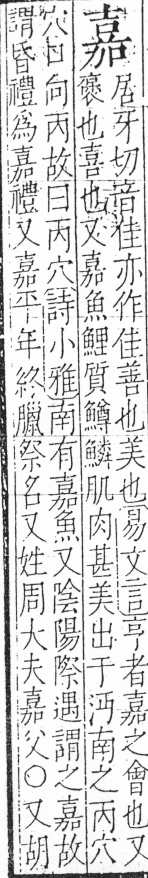 嘉居牙切音佳亦作佳善也美也易文言亨者嘉之會也又
襃也喜也又嘉魚鯉質鱒鱗肌肉甚美出于沔南之丙穴
穴口向丙故曰丙穴詩小雅南有嘉魚又陰陽際遇謂之嘉故
謂昏禮為嘉禮又嘉平年終臘祭名又姓周大夫嘉父○又胡